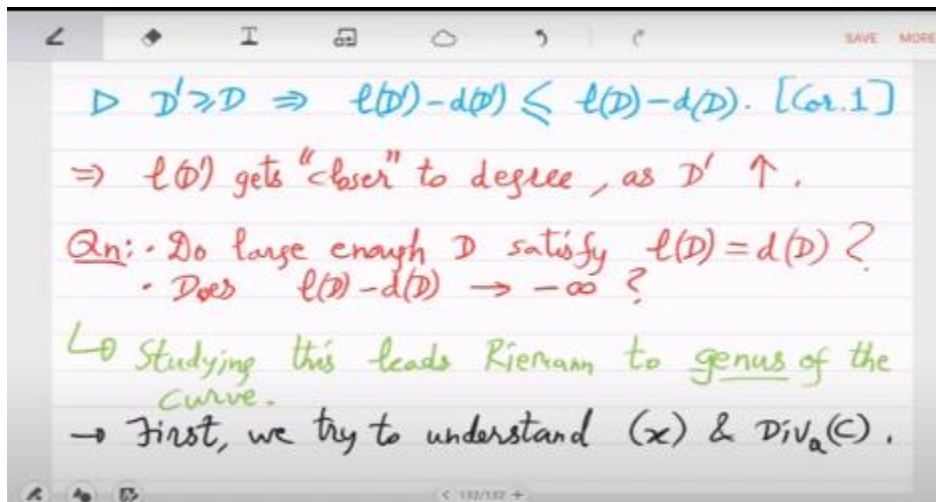 SAVE MORE
▷ D'≥D ⇒ l(D')-d(D') ≤ l(D)-d(D). [Cor.1]
⇒ l(D') gets "closer" to degree, as D' ↑.
Qn: · Do large enough D satisfy l(D)=d(D)?
· Does l(D)-d(D) → -∞ ?
↳ Studying this leads Riemann to genus of the
curve.
→ First, we try to understand (x) & Divₐ(C).
< 132/132 +